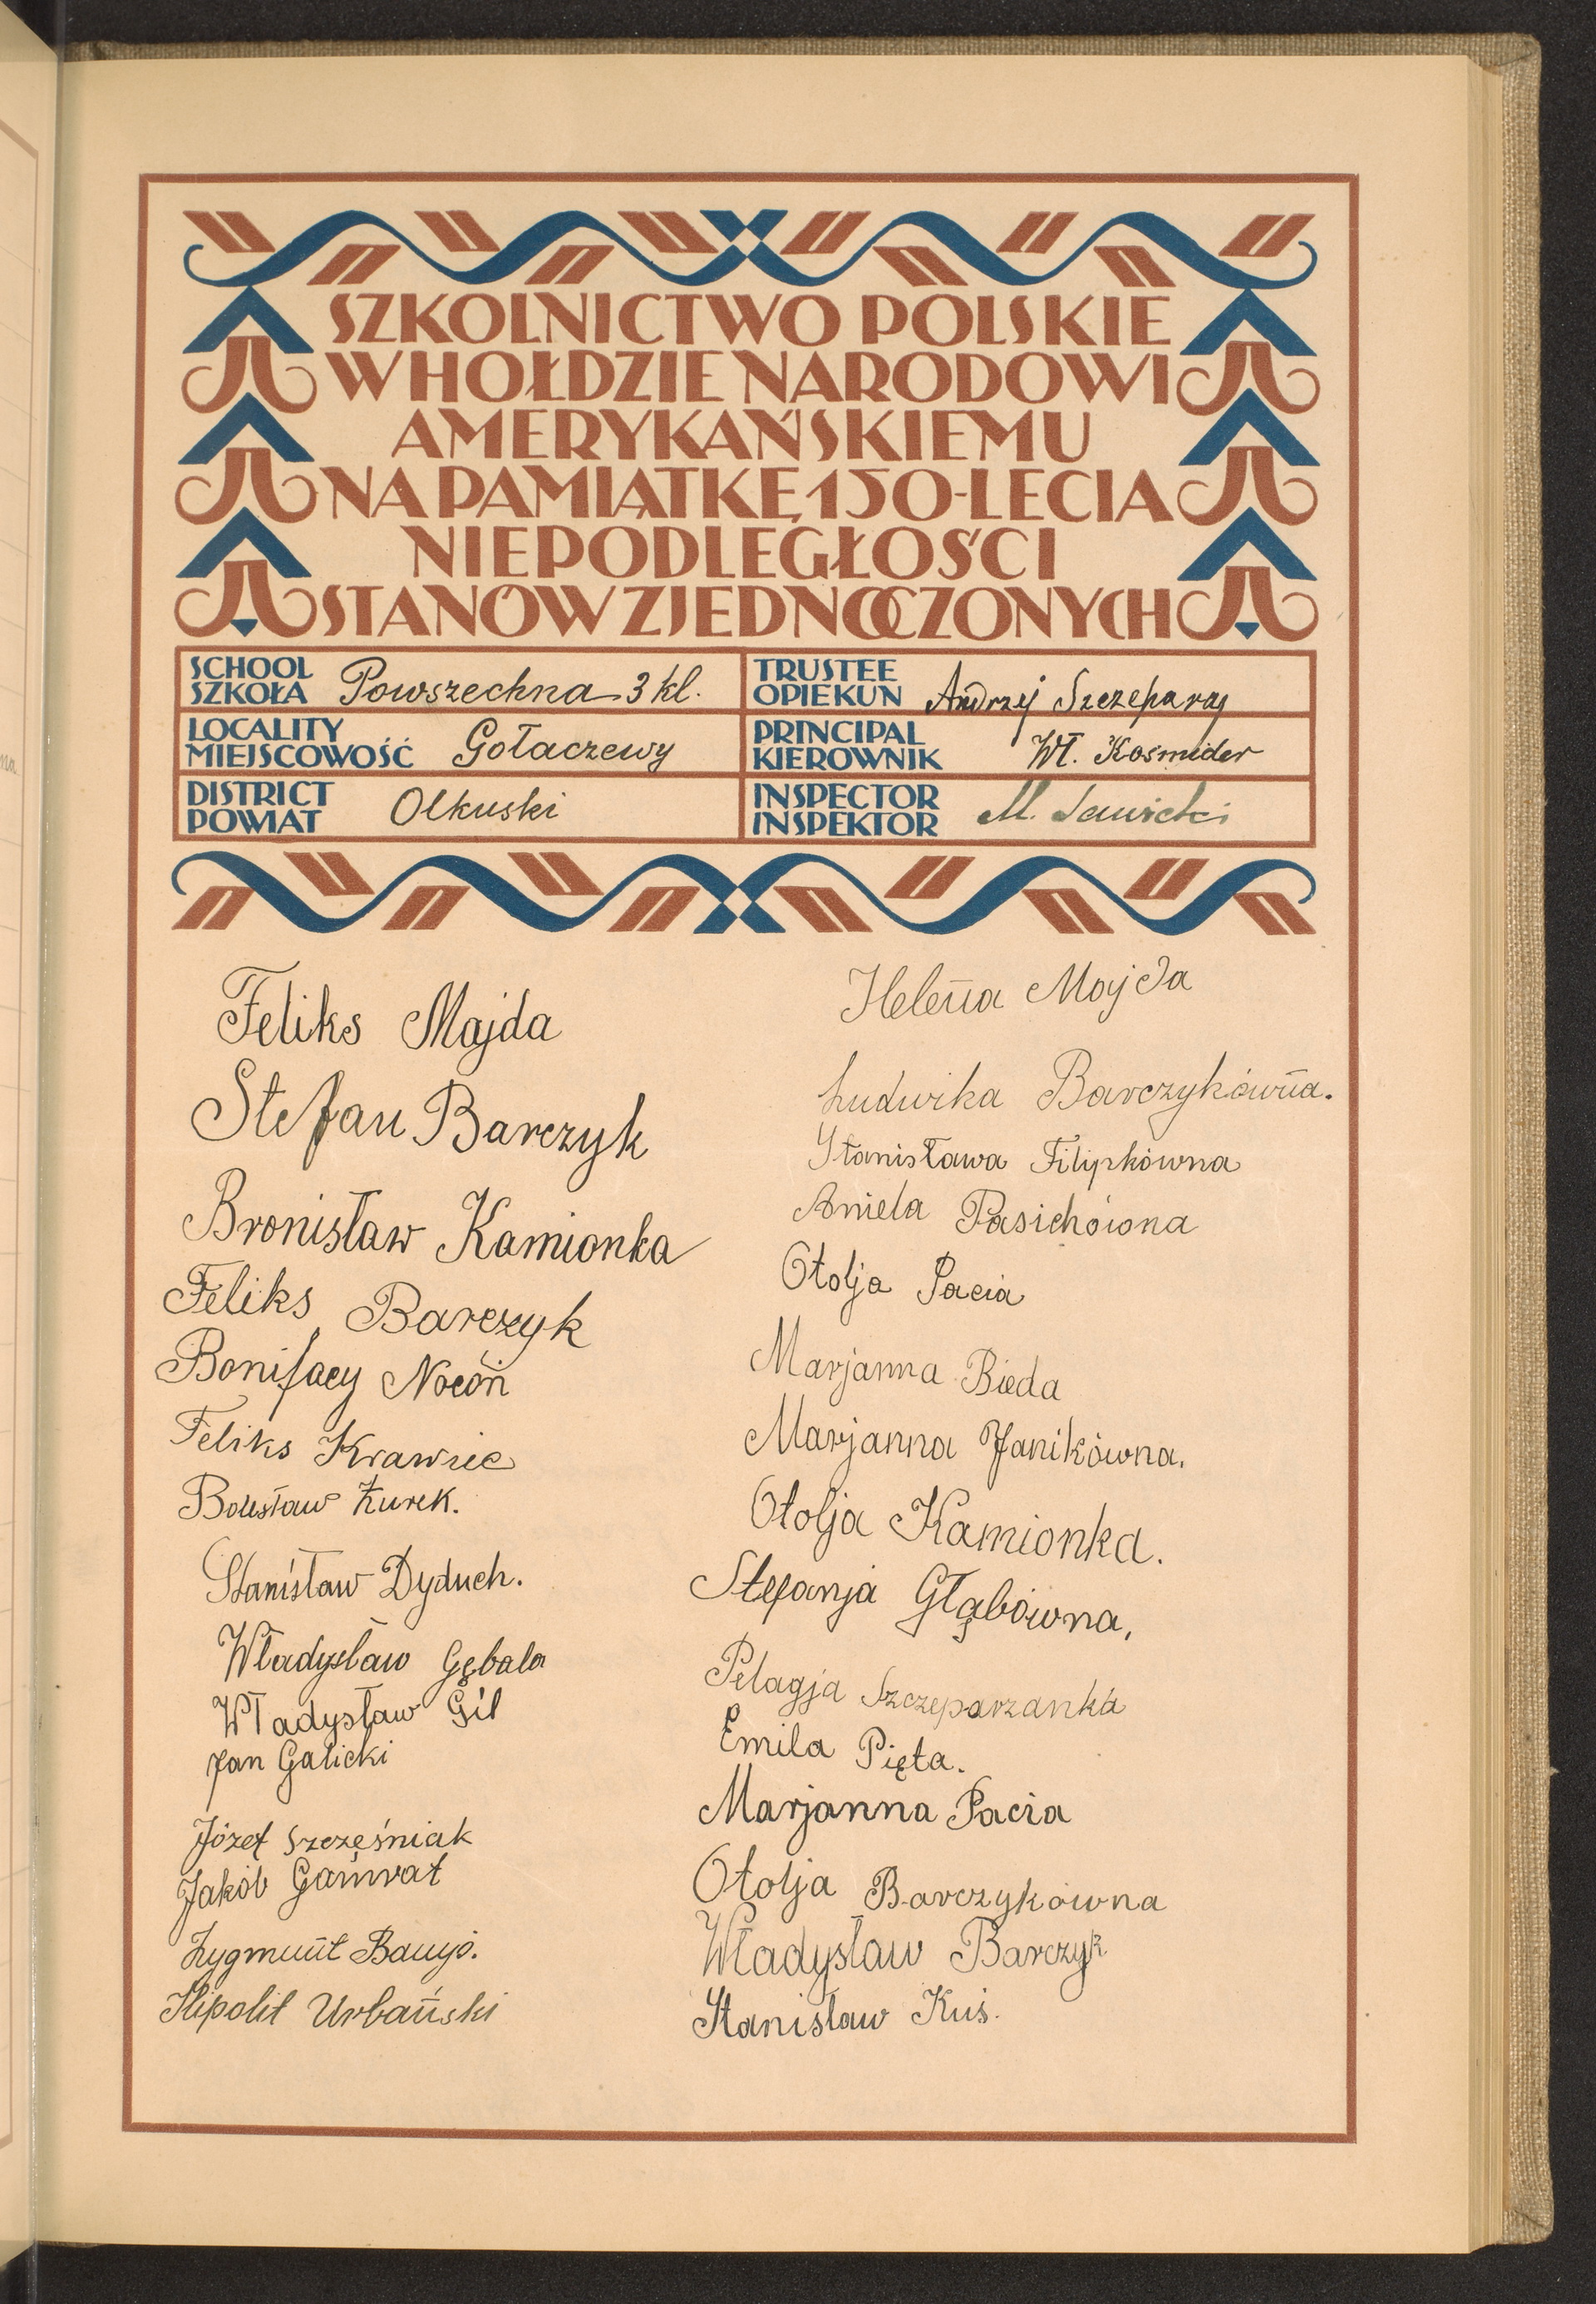 SZKOLNICTWO POLSKIE
W HOŁDZIE NARODOWI
AMERYKAŃSKIEMU
NA PAMIĄTKĘ 150-LECIA
NIEPODLEGŁOŚCI
STANÓW ZJEDNOCZONYCH
SCHOOL
SZKOŁA Powszechna 3 kl.
TRUSTEE
OPIEKUN Andrzej
LOCALITY
MIEJSCOWOŚĆ Gołaczewy
PRINCIPAL
KIEROWNIK Wł. Kośmider
DISTRICT
POWIAT Olkuski
INSPECTOR
INSPEKTOR M. Sawicki
Feliks Majda
Stefan Barczyk
Bronisław Kamionka
Feliks Barczyk
Bonifacy Nocóń
Feliks Krawiec
Bolesław Żurek.
Stanisław Dyduch.
Władysław Gębala
Władysław Gil
Jan Galicki
Józef Szcześniak
Jakób Gamrat
Zygmunt
Hipolit Urbański
Helena Majda
Ludwika Barczykówna.
Stanisława Filipkówna
Aniela Pasichówna
Otolja Pacia
Marjanna Bieda
Marjanna Janikówna.
Otolja Kamionka.
Stefanja Głąbówna,
Pelagja Szczeparzanka
Emila Pięta.
Marjanna Pacia
Otolja Barczykówna
Władysław Barczyk
Stanisław Kuś.